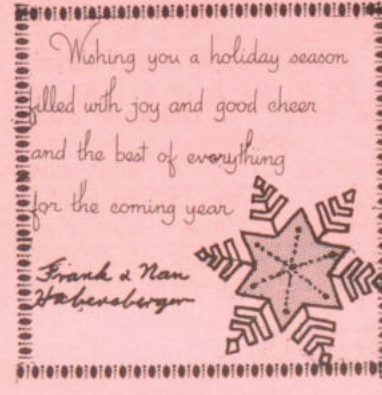 Wishing you a holiday season
filled with joy and good cheer
and the best of everything
for the coming year
Frank & Nan
Habensberger